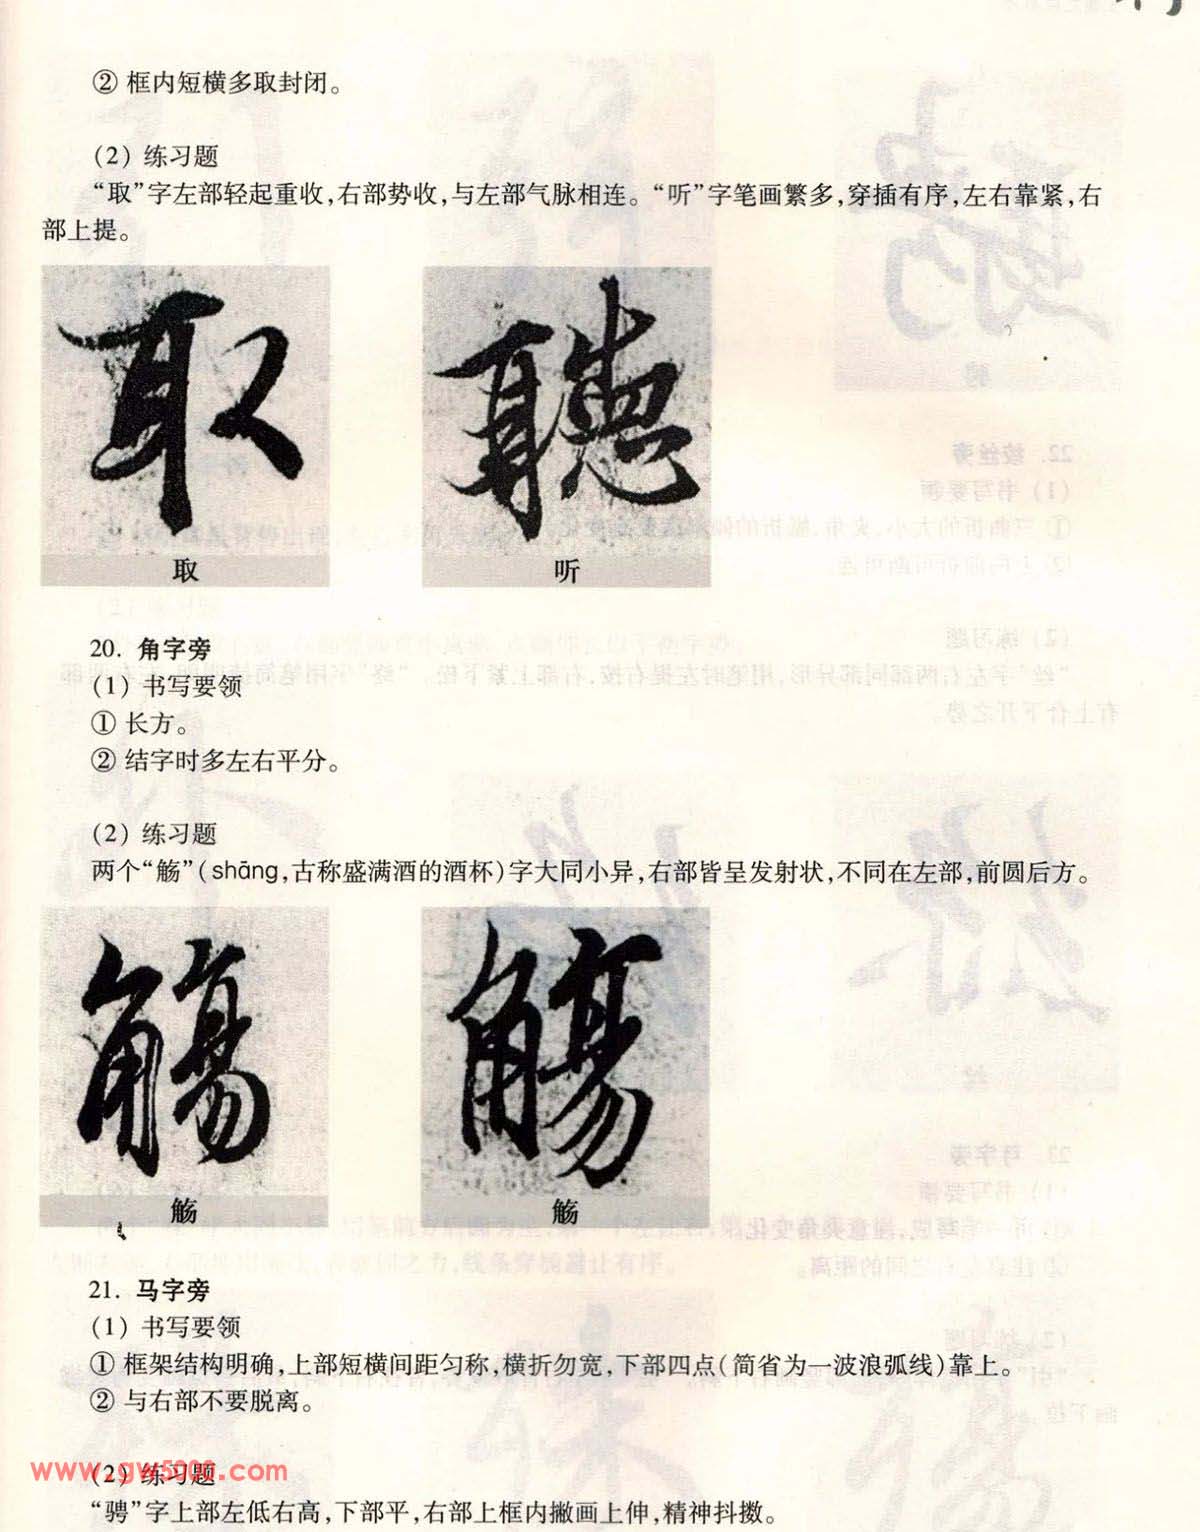 ② 框内短横多取封闭。
(2) 练习题
“取”字左部轻起重收,右部势收,与左部气脉相连。“听”字笔画繁多,穿插有序,左右靠紧,右
部上提。
取 聽
取 听
20. 角字旁
(1) 书写要领
① 长方。
② 结字时多左右平分。
(2) 练习题
两个“觞”(shāng,古称盛满酒的酒杯)字大同小异,右部皆呈发射状,不同在左部,前圆后方。
觴 觴
觞 觞
21. 马字旁
(1) 书写要领
① 框架结构明确,上部短横间距匀称,横折勿宽,下部四点(简省为一波浪弧线)靠上。
② 与右部不要脱离。
www.gw5000.com
(2) 练习题
“骋”字上部左低右高,下部平,右部上框内撇画上伸,精神抖擞。